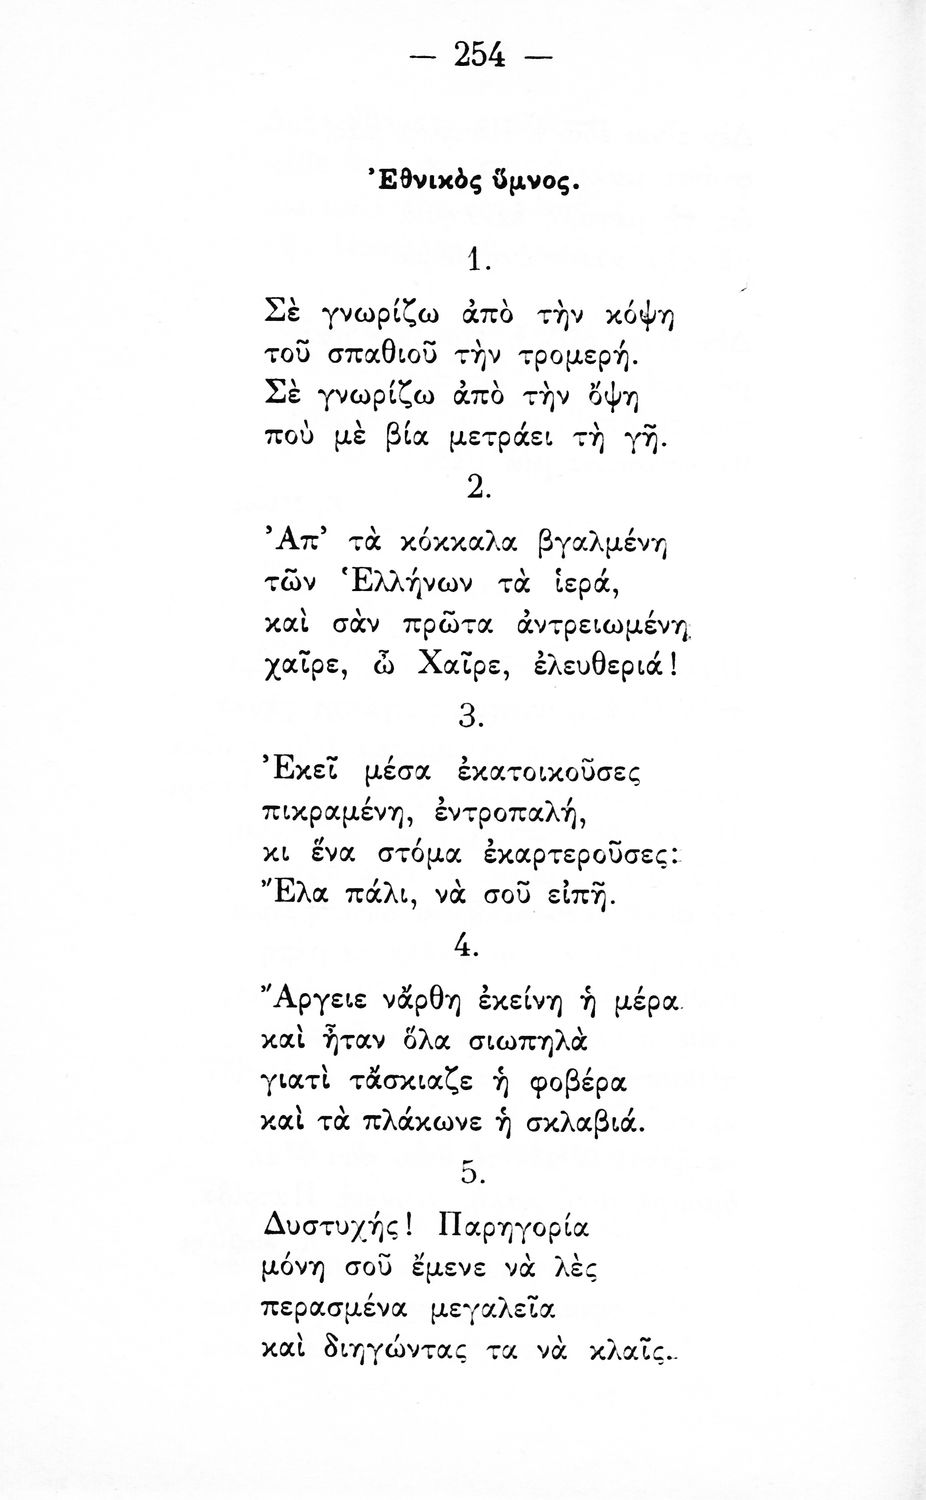 — 254 —
Ἐθνικὸς ὕμνος.
1.
Σὲ γνωρίζω ἀπὸ τὴν κόψη
τοῦ σπαθιοῦ τὴν τρομερή.
Σὲ γνωρίζω ἀπὸ τὴν ὄψη
ποὺ μὲ βία μετράει τὴ γῆ.
2.
Ἀπ’ τὰ κόκκαλα βγαλμένη
τῶν Ἑλλήνων τὰ ἱερά,
καὶ σὰν πρῶτα ἀντρειωμένη
χαῖρε, ὦ Χαῖρε, ἐλευθεριά!
3.
Ἐκεῖ μέσα ἐκατοικοῦσες
πικραμένη, ἐντροπαλή,
κι ἕνα στόμα ἐκαρτεροῦσες:
Ἔλα πάλι, νὰ σοῦ εἰπῆ.
4.
Ἄργειε νἄρθη ἐκείνη ἡ μέρα
καὶ ἦταν ὅλα σιωπηλὰ
γιατὶ τἄσκιαζε ἡ φοβέρα
καὶ τὰ πλάκωνε ἡ σκλαβιά.
5.
Δυστυχής! Παρηγορία
μόνη σοῦ ἔμενε νὰ λὲς
περασμένα μεγαλεῖα
καὶ διηγώντας τα νὰ κλαῖς.